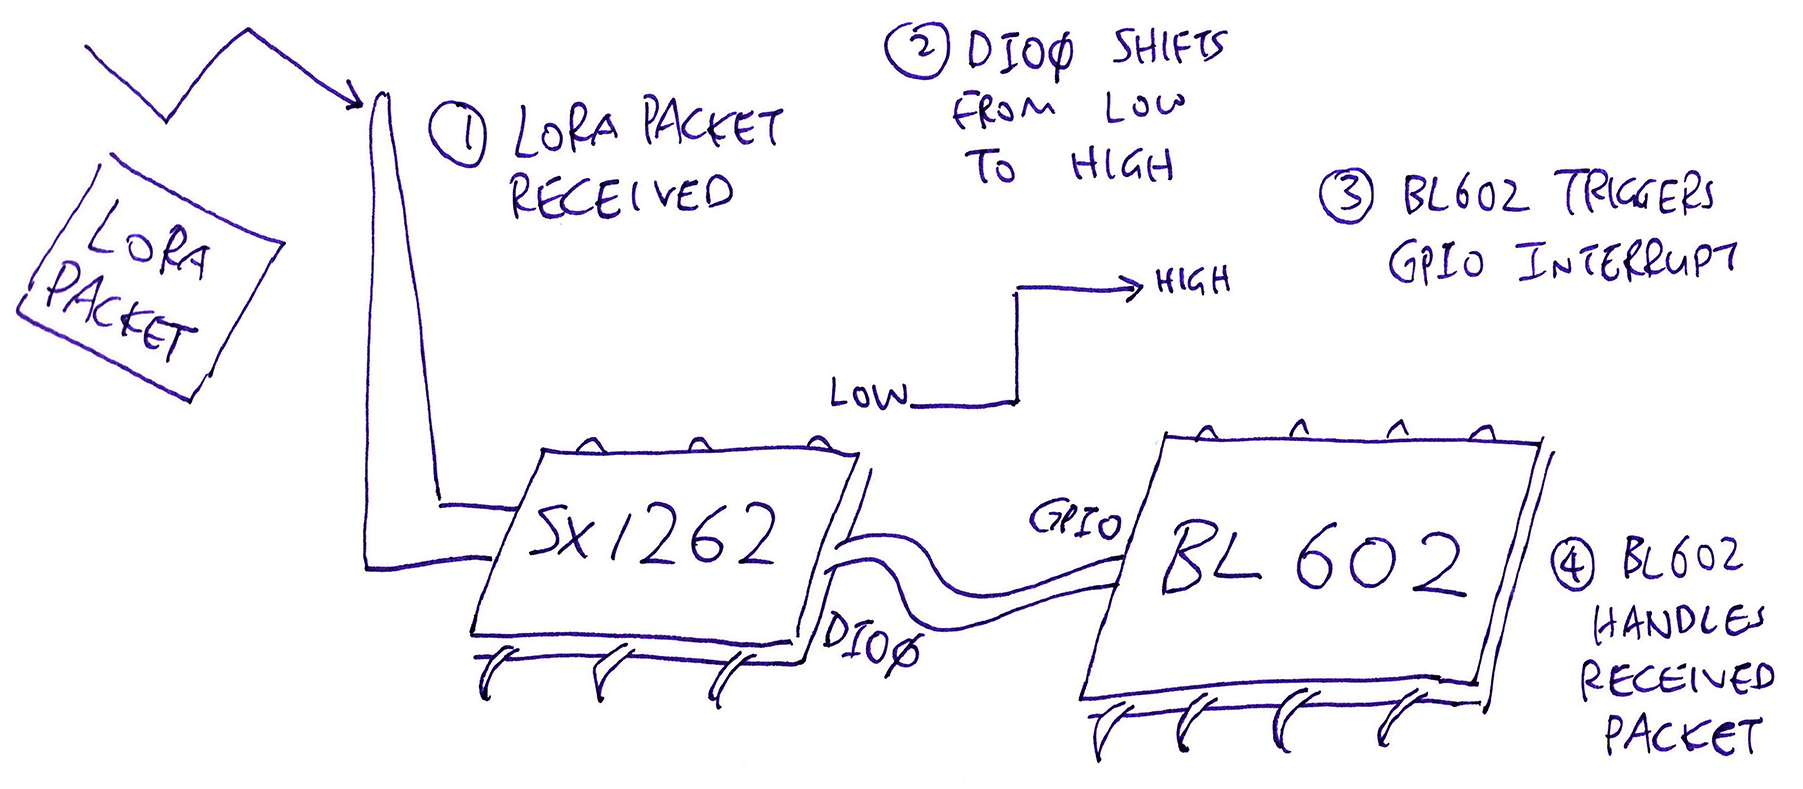 LORA
PACKET
① LORA PACKET
RECEIVED
② DIOØ SHIFTS
FROM LOW
TO HIGH
③ BL602 TRIGGERS
GPIO INTERRUPT
HIGH
LOW
SX1262
DIOØ
GPIO
BL602
④ BL602
HANDLES
RECEIVED
PACKET